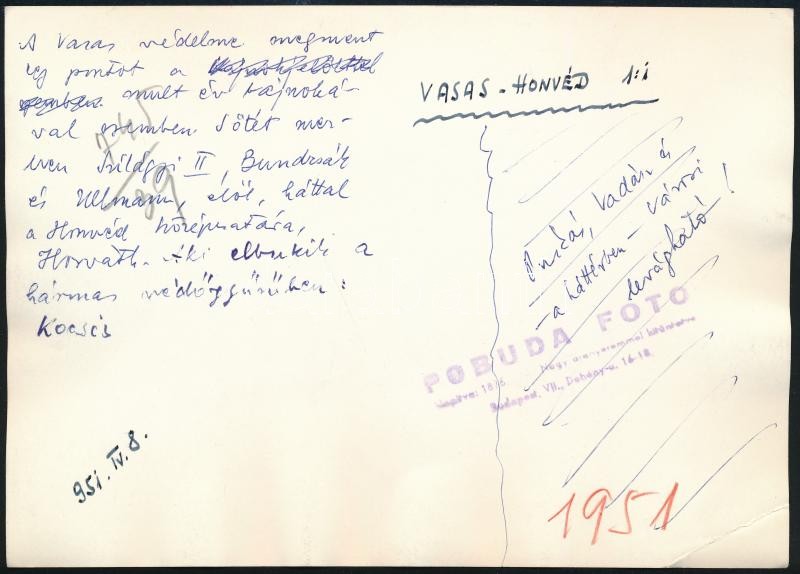 A Vasas védelme megment
egy pontot a
mult év bajnoká-
val szemben. Sötét mez-
ben Szilágyi II, Bundzsák
és Ullmann, elől, háttal
a Honvéd középcsatára,
Horváth. Aki elbukik a
hármas védőgyűrűben:
Kocsis
951. IV. 8.
VASAS - HONVÉD 1:1
Puskás, Vadász és
- a háttérben - Városi
levágható!
POBUDA FOTO
Alapítva: 1875 Nagy aranyéremmel kitüntetve
Budapest, VII., Dohány-u. 16-18.
1951